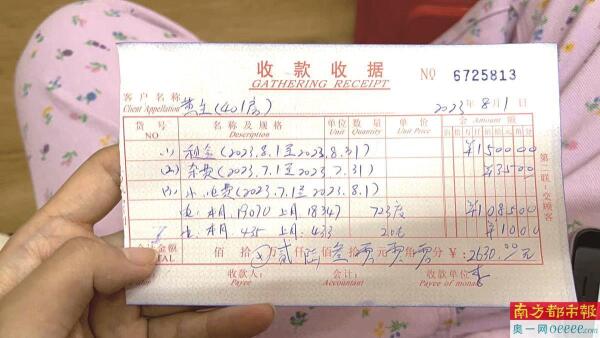 收款收据
GATHERING RECEIPT
NO 6725813
客户名称 黄生(401房)
Client Appellation
2023年8月1日
货号 名称及规格 单位 数量 单价 金 Amount 额
NO Description Unit Quantity Unit Price
(1) 租金(2023.8.1至2023.8.31) ¥150000
(2) 杂费(2023.7.1至2023.7.31) ¥3500
(3) 水电费(2023.7.1至2023.8.1)
电:本月:19070 上月:18347 723度 ¥108500
本月:435 上月:433 2吨 ¥1000
金额 佰拾万贰仟陆佰叁拾零元零角零分 ¥:2630.00元
TAL
收款人: 会计: 收款单位:
Payee Accountant Payee of
第二联:交顾客
南方都市報
奥一网oeeee.com